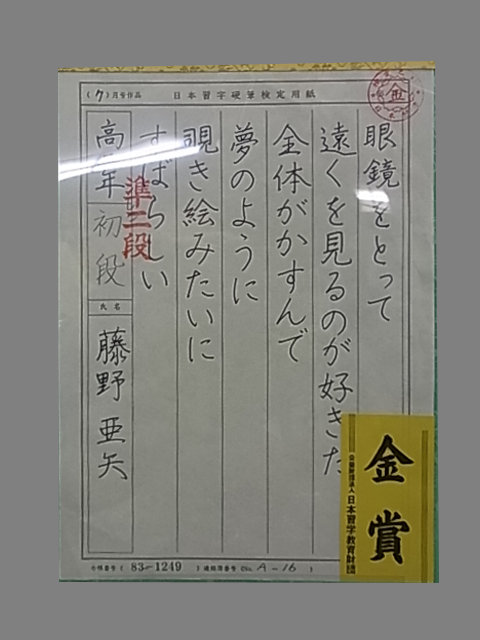 (7)月号作品
日本習字硬筆検定用紙
金
眼鏡をとって
遠くを見るのが好きだ
全体がかすんで
夢のように
覗き絵みたいに
すばらしい
高年 初段
準二段
氏名
藤野亜矢
金賞
公益財団法人 日本習字教育財団
小棟番号(83-1249)
(No. A-16)